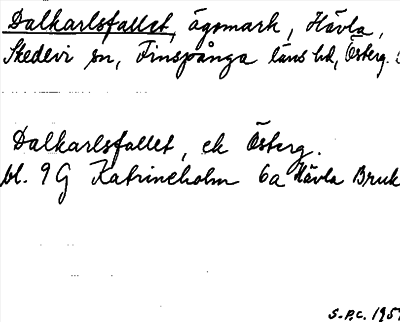 Dalkarlsfallet, ägomark, Hävla,
Skedevi sn, Finspånga läns hd, Österg.
Dalkarlsfallet, ek Österg.
bl. 9G Katrineholm 6a Hävla Bruk
S.P.C. 195